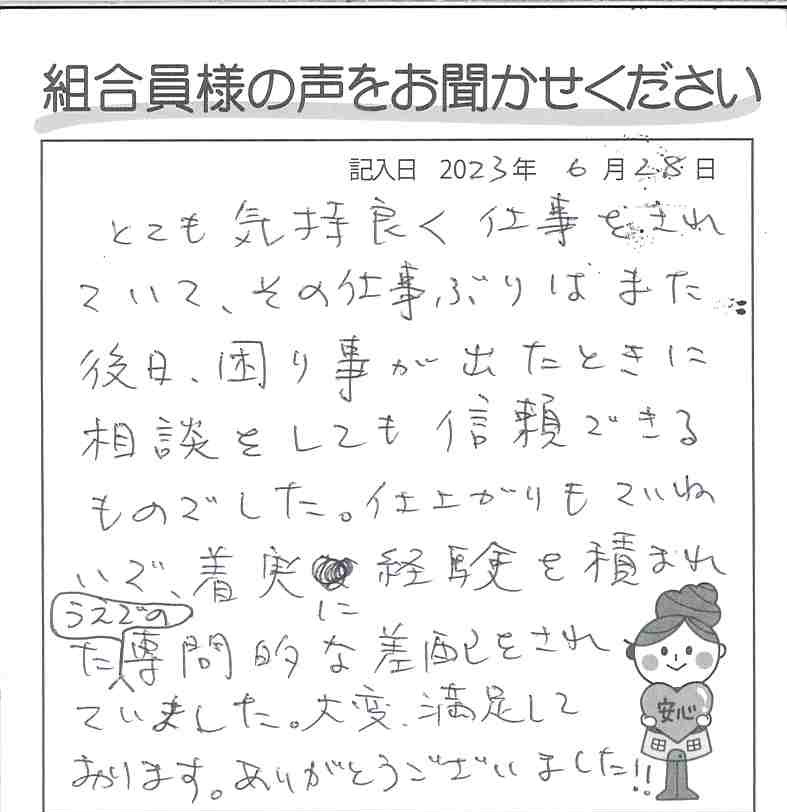 組合員様の声をお聞かせください
記入日 2023年 6月28日
とても気持良く仕事をされ
ていて、その仕事ぶりはまた
後日、困り事が出たときに
相談をしても信頼できる
ものでした。仕上がりもていね
いで、着実に経験を積まれ
たうえでの専問的な差配をされ
ていました。大変、満足して
おります。ありがとうございました!!
安心